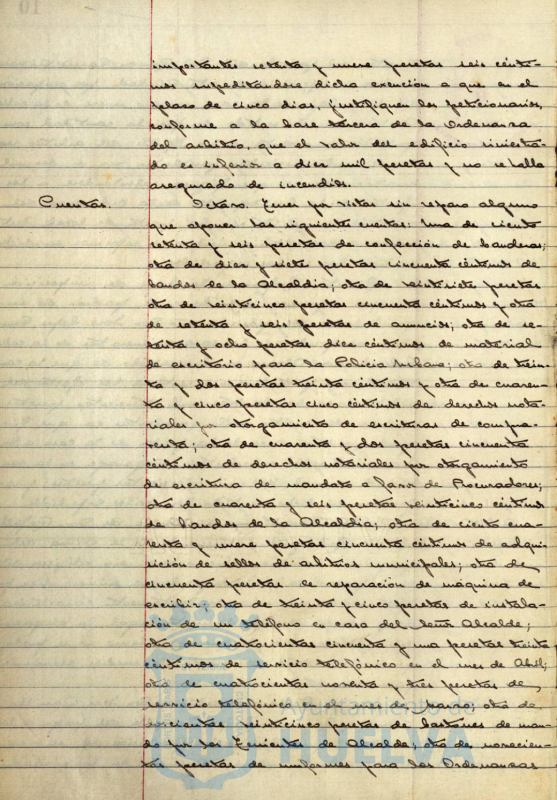 importantes setenta y nueve pesetas seis cénti-
mos supeditándose dicha exención a que en el
plazo de cinco dias, justifiquen los peticionarios,
conforme a la base tercera de la Ordenanza
del arbitrio, que el valor del edificio siniestra-
do es inferior a diez mil pesetas y no se halla
asegurado de incendios.
Cuentas. Octavo. Tener por vistas sin reparo alguno
que oponer las siguientes cuentas: Una de ciento
setenta y seis pesetas de confección de banderas;
otra de diez y siete pesetas cincuenta céntimos de
bandos de la Alcaldia; otra de veintisiete pesetas
otra de veinticinco pesetas cincuenta céntimos y otra
de setenta y seis pesetas de anuncios; otra de se-
senta y ocho pesetas diez céntimos de material
de escritorio para la Policia Urbana; otra de trein-
ta y dos pesetas treinta céntimos y otra de cuaren-
ta y cinco pesetas cinco céntimos de derechos nota-
riales por otorgamiento de escrituras de compra-
venta; otra de cuarenta y dos pesetas cincuenta
céntimos de derechos notariales por otorgamiento
de escritura de mandato a favor de Procuradores;
otra de cuarenta y seis pesetas veinticinco céntimos
de bandos de la Alcaldia; otra de ciento cua-
renta y nueve pesetas cincuenta céntimos de adqui-
sición de sellos de arbitrios municipales; otra de
cincuenta pesetas de reparación de máquina de
escribir; otra de treinta y cinco pesetas de instala-
ción de un teléfono en casa del Señor Alcalde;
otra de cuatrocientas cincuenta y una pesetas treinta
céntimos de servicio telefónico en el mes de Abril;
otra de cuatrocientas noventa y tres pesetas de
servicio telefónico en el mes de Marzo; otra de
veinticinco pesetas de bastones de man-
do por los Tenientes de Alcalde; otra de novecien-
tas pesetas de uniformes para los Ordenanzas
Ayuntamiento de
HUELVA